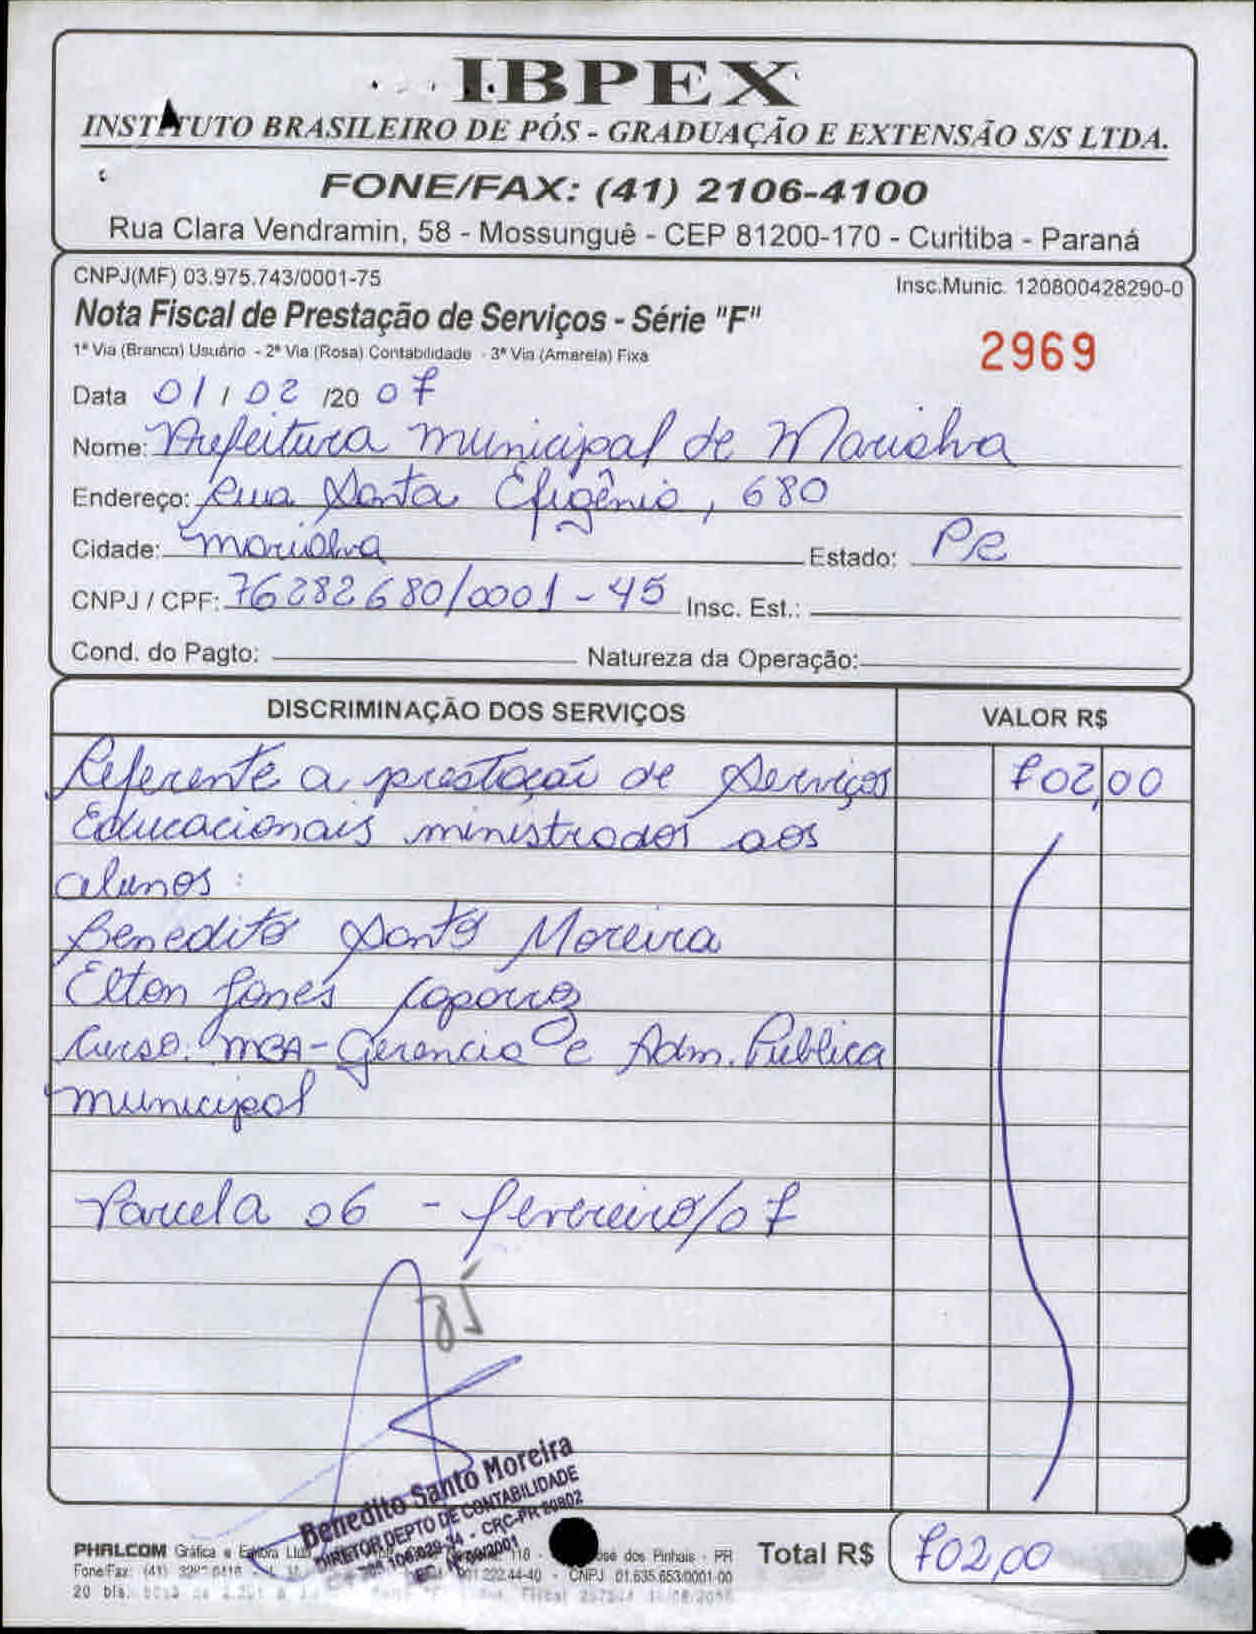 IBPEX
INSTITUTO BRASILEIRO DE PÓS - GRADUAÇÃO E EXTENSÃO S/S LTDA.
FONE/FAX: (41) 2106-4100
Rua Clara Vendramin, 58 - Mossunguê - CEP 81200-170 - Curitiba - Paraná
CNPJ(MF) 03.975.743/0001-75
Insc.Munic. 120800428290-0
Nota Fiscal de Prestação de Serviços - Série "F"
1ª Via (Branca) Usuário - 2ª Via (Rosa) Contabilidade - 3ª Via (Amarela) Fixa
2969
Data 01 / 02 /20 07
Nome: Prefeitura municipal de Marialva
Endereço: Rua Santa Efigênia, 680
Cidade: marialva Estado: PR
CNPJ / CPF: 76282680/0001-45 Insc. Est.:
Cond. do Pagto: Natureza da Operação:
DISCRIMINAÇÃO DOS SERVIÇOS VALOR R$
Referente a prestação de Serviços 702,00
Educacionais ministrados aos
alunos:
Benedito Santo Moreira
Elton Jones Caparroz
Curso: MBA-Gerencia e Adm. Pública
municipal
Parcela 06 - fevereiro/07
Benedito Santo Moreira
DIRETOR DEPTO DE CONTABILIDADE
CRC-PR
PHALCOM Gráfica e Editora
José dos Pinhais - PR
Fone/Fax: (41)
CNPJ 01.635.653/0001-00
20 bls.
Total R$ 702,00